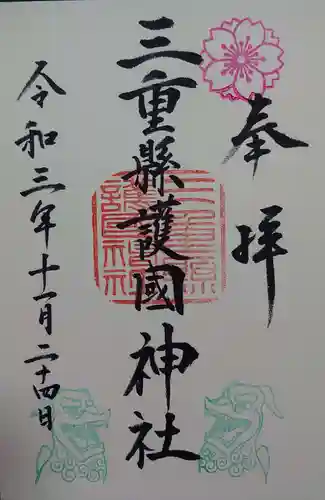 奉拝
三重縣護國神社
三重縣護國神社
令和三年十一月二十四日